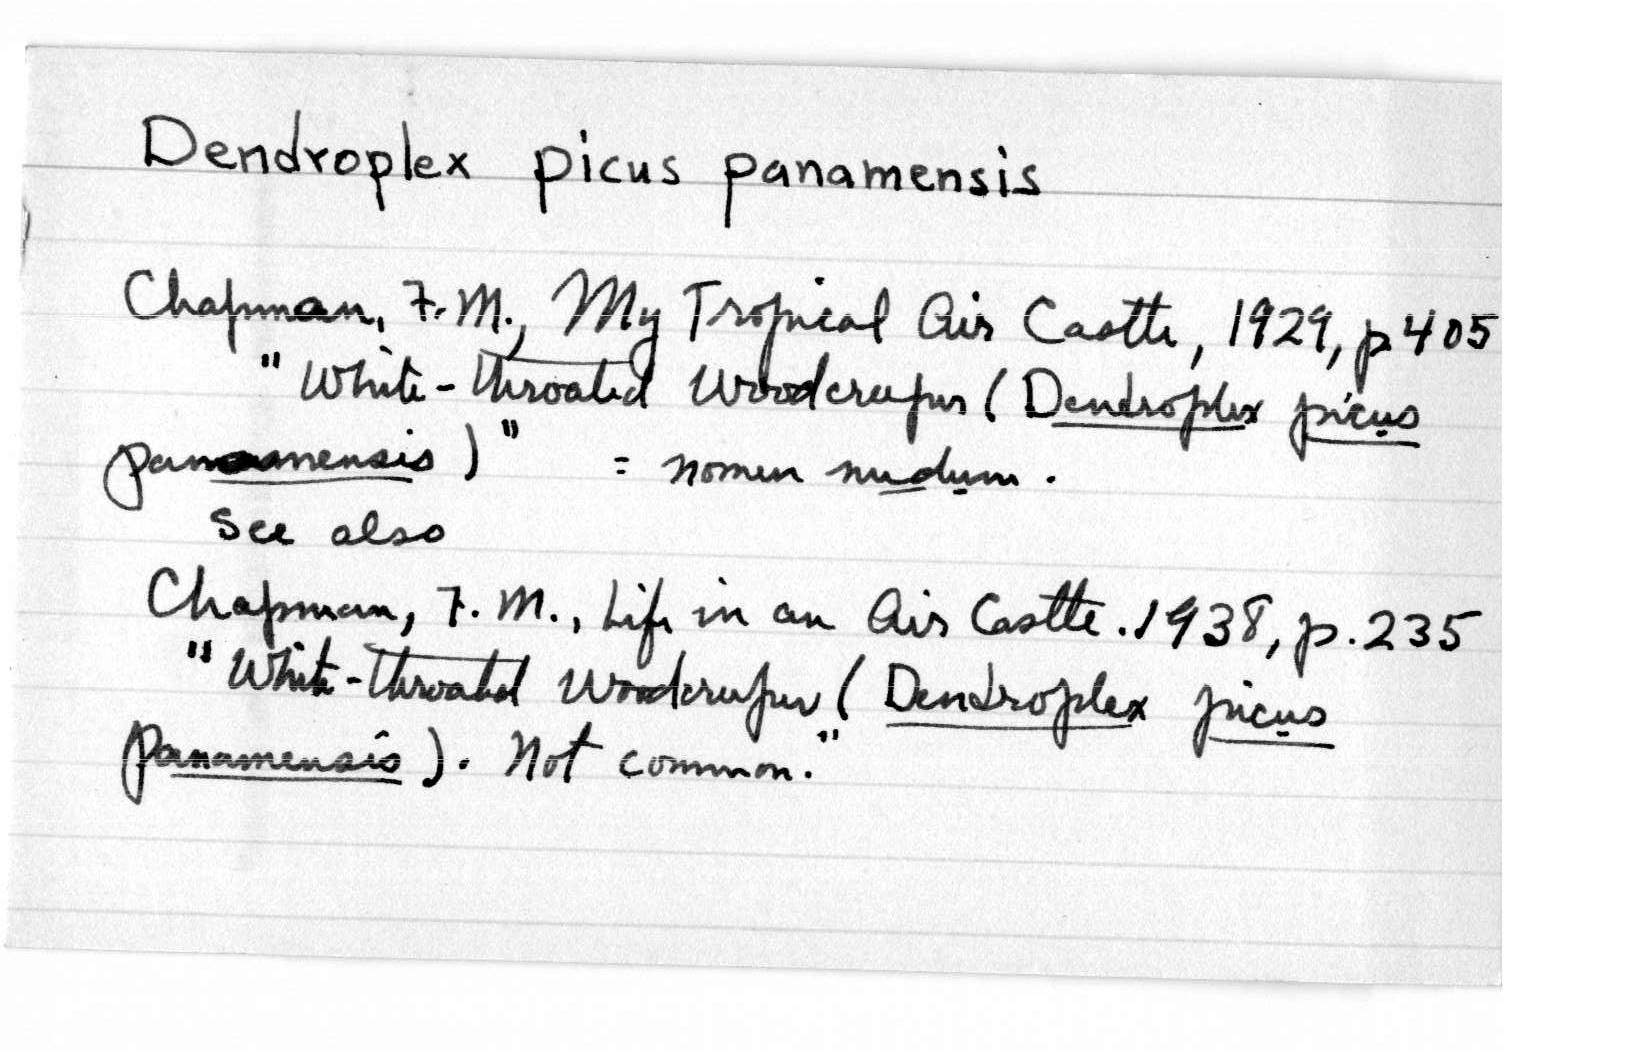 Dendroplex picus panamensis
Chapman, F. M., My Tropical Air Castle, 1929, p 405
"White-throated Woodcreeper (Dendroplex picus
panamensis)" = nomen nudum.
See also
Chapman, F. M., Life in an Air Castle. 1938, p. 235
"White-throated Woodcreeper (Dendroplex picus
panamensis). Not common."